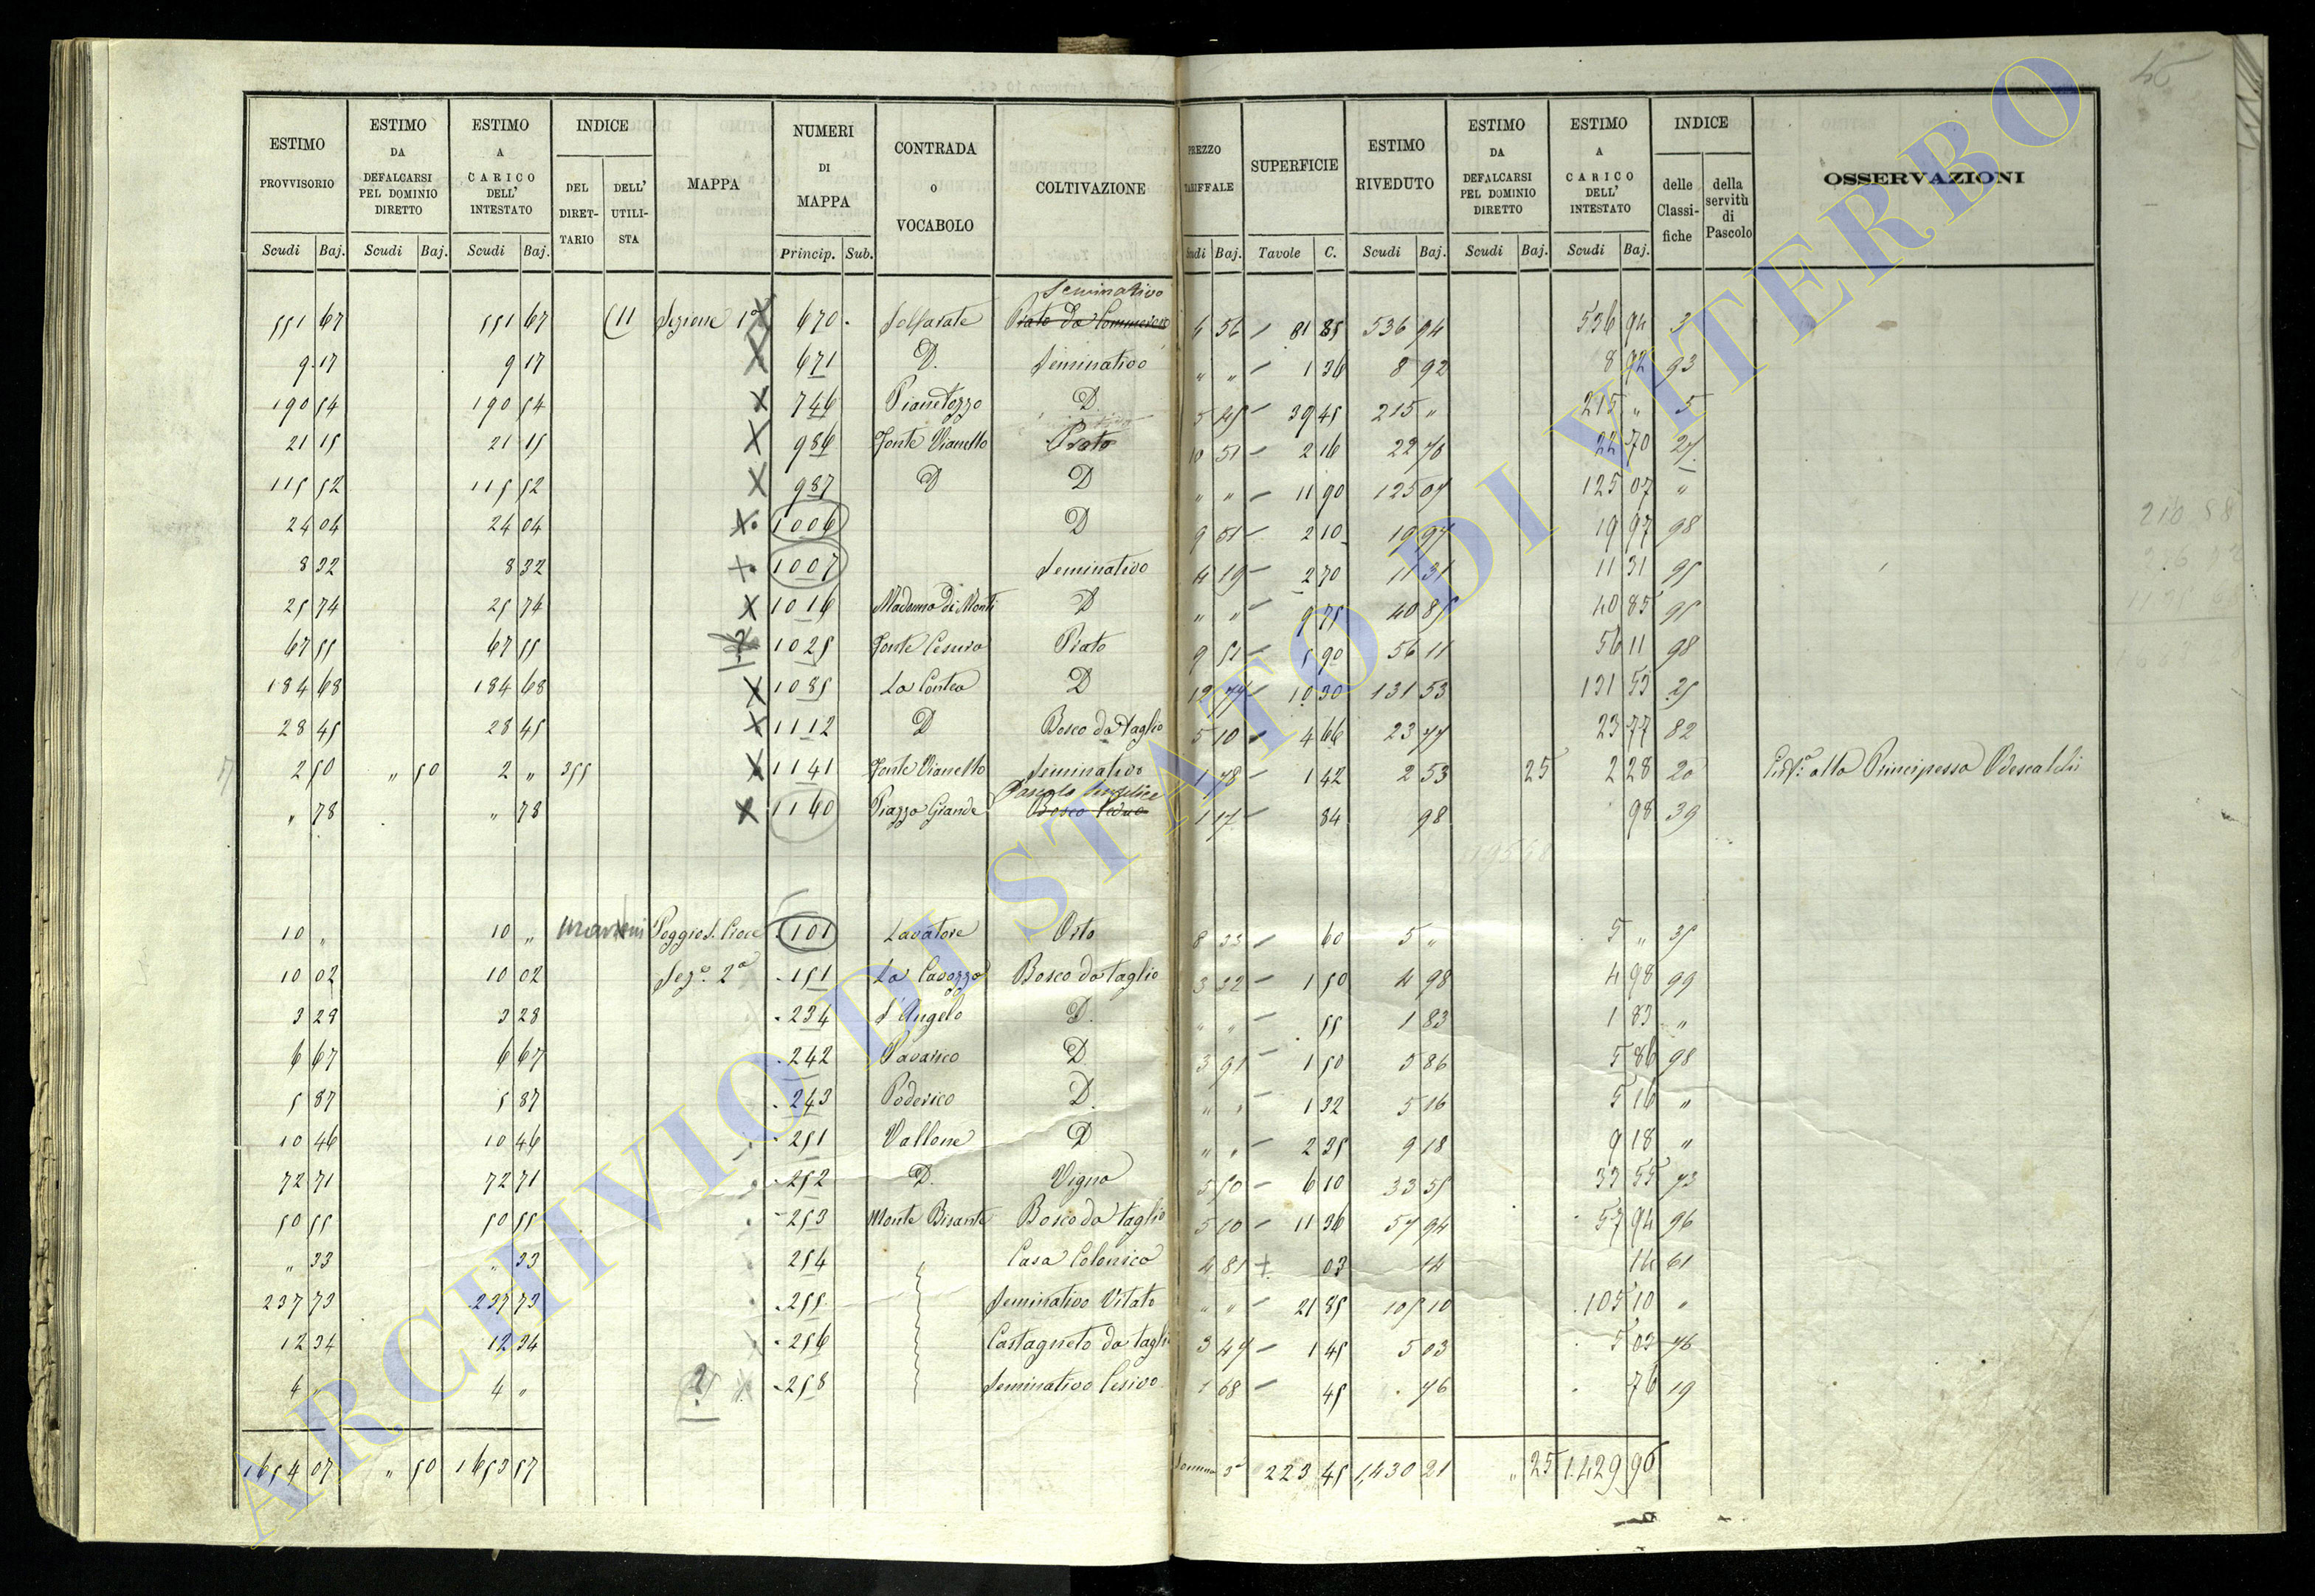 45
ESTIMO PROVVISORIO | ESTIMO DA DEFALCARSI PEL DOMINIO DIRETTO | ESTIMO A CARICO DELL' INTESTATO | INDICE DEL DIRETTARIO | DELL' UTILISTA | MAPPA | NUMERI DI MAPPA | CONTRADA O VOCABOLO | COLTIVAZIONE | PREZZO TARIFFALE | SUPERFICIE | ESTIMO RIVEDUTO | ESTIMO DA DEFALCARSI PEL DOMINIO DIRETTO | ESTIMO A CARICO DELL' INTESTATO | INDICE delle Classifiche | della servitù di Pascolo | OSSERVAZIONI
Scudi Baj. | Scudi Baj. | Scudi Baj. | Princip. Sub. | Scudi Baj. | Tavole C. | Scudi Baj. | Scudi Baj. | Scudi Baj.
Seminativo
551 67 551 67 11 Sezione 1a 670 Solfarate Prato da Commercio 6 56 81 85 536 94 536 94 3
9 17 9 17 671 D. Seminativo " " 1 36 8 92 8 92 93
190 54 190 54 746 Pianetozzo D. 5 45 39 45 215 " 215 " 5
21 15 21 15 986 Fonte Vianello Prato 10 51 2 16 22 70 22 70 27
115 52 115 52 987 D D " " 11 90 125 07 125 07 "
24 04 24 04 1006 D 9 51 2 10 19 97 19 97 98
8 32 8 32 1007 Seminativo 4 19 2 70 11 31 11 31 95
25 74 25 74 1016 Madonna de Monti D " " 9 75 40 85 40 85 95
67 55 67 55 ? 1025 Fonte Cesura Prato 9 51 5 90 56 11 56 11 98
184 68 184 68 1085 La Contea D 12 77 10 30 131 53 131 53 25
28 45 28 45 1112 D Bosco da taglio 5 10 4 66 23 77 23 77 82
2 50 " 50 2 " 355 1141 Fonte Vianello Seminativo 1 78 1 42 2 53 25 2 28 20 alla Principessa Odescalchi
Pascolo Semplice
" 78 " 78 1160 Piazza Grande Bosco Ceduo 1 17 84 98 98 39
10 " 10 " Poggio S. Croce 101 Lavatore Orto 8 33 60 5 " 5 " 35
10 02 10 02 Sez.e 2a 151 La Cavozza Bosco da taglio 3 32 1 50 4 98 4 98 99
3 28 3 28 234 S. Angelo D. " " 55 1 83 1 83 "
6 67 6 67 242 Pavarico D 3 91 1 50 5 86 5 86 98
5 87 5 87 243 Poderico D. " " 1 32 5 16 5 16 "
10 46 10 46 251 Vallone D " " 2 35 9 18 9 18 "
72 71 72 71 252 D. Vigna 5 50 6 10 33 55 33 55 73
50 55 50 55 253 Monte Bisante Bosco da taglio 5 10 11 36 57 94 57 94 96
" 33 " 33 254 Casa Colonica 4 81 03 14 14 61
237 73 237 73 255 Seminativo Vitato " " 21 85 105 10 105 10 "
12 34 12 34 256 Castagneto da taglio 3 47 1 45 5 03 5 03 76
4 " 4 " ? 258 Seminativo Cesivo 1 68 45 76 76 19
1654 07 " 50 1653 57 Somma 223 45 1,430 21 " 25 1,429 96
ARCHIVIO DI STATO DI VITERBO